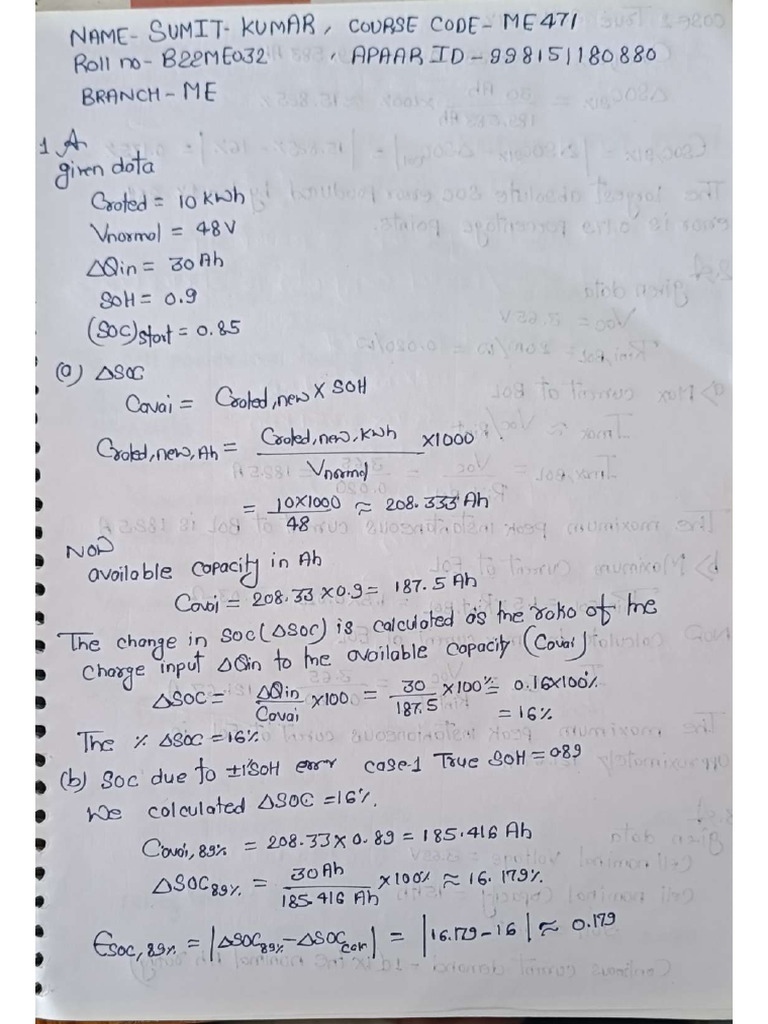 NAME- SUMIT KUMAR, COURSE CODE- ME471
Roll no- B22ME032, APAAR ID-998151180880
BRANCH-ME
1 A
given data
Crated = 10 kwh
Vnormal = 48 V
ΔQin = 30 Ah
SOH = 0.9
(SOC)start = 0.85
(a) ΔSOC
Cavai = Crated,new × SOH
Crated,new,Ah = Crated,new,kwh / Vnormal ×1000
= 10×1000 / 48 ≈ 208.333 Ah
NOW
available capacity in Ah
Cavai = 208.33 ×0.9 = 187.5 Ah
The change in SOC (ΔSOC) is calculated as the ratio of the
charge input ΔQin to the available capacity (Cavai)
ΔSOC = ΔQin / Cavai ×100 = 30 / 187.5 ×100% = 0.16×100%
= 16%
The % ΔSOC = 16%
(b) SOC due to ±1%SOH error case-1 True SOH = 089
We calculated ΔSOC = 16%.
Cavai, 89% = 208.33 × 0.89 = 185.416 Ah
ΔSOC89% = 30 Ah / 185.416 Ah ×100% ≈ 16.179%
ESOC, 89% = |ΔSOC89% - ΔSOCcal| = |16.179-16| ≈ 0.179